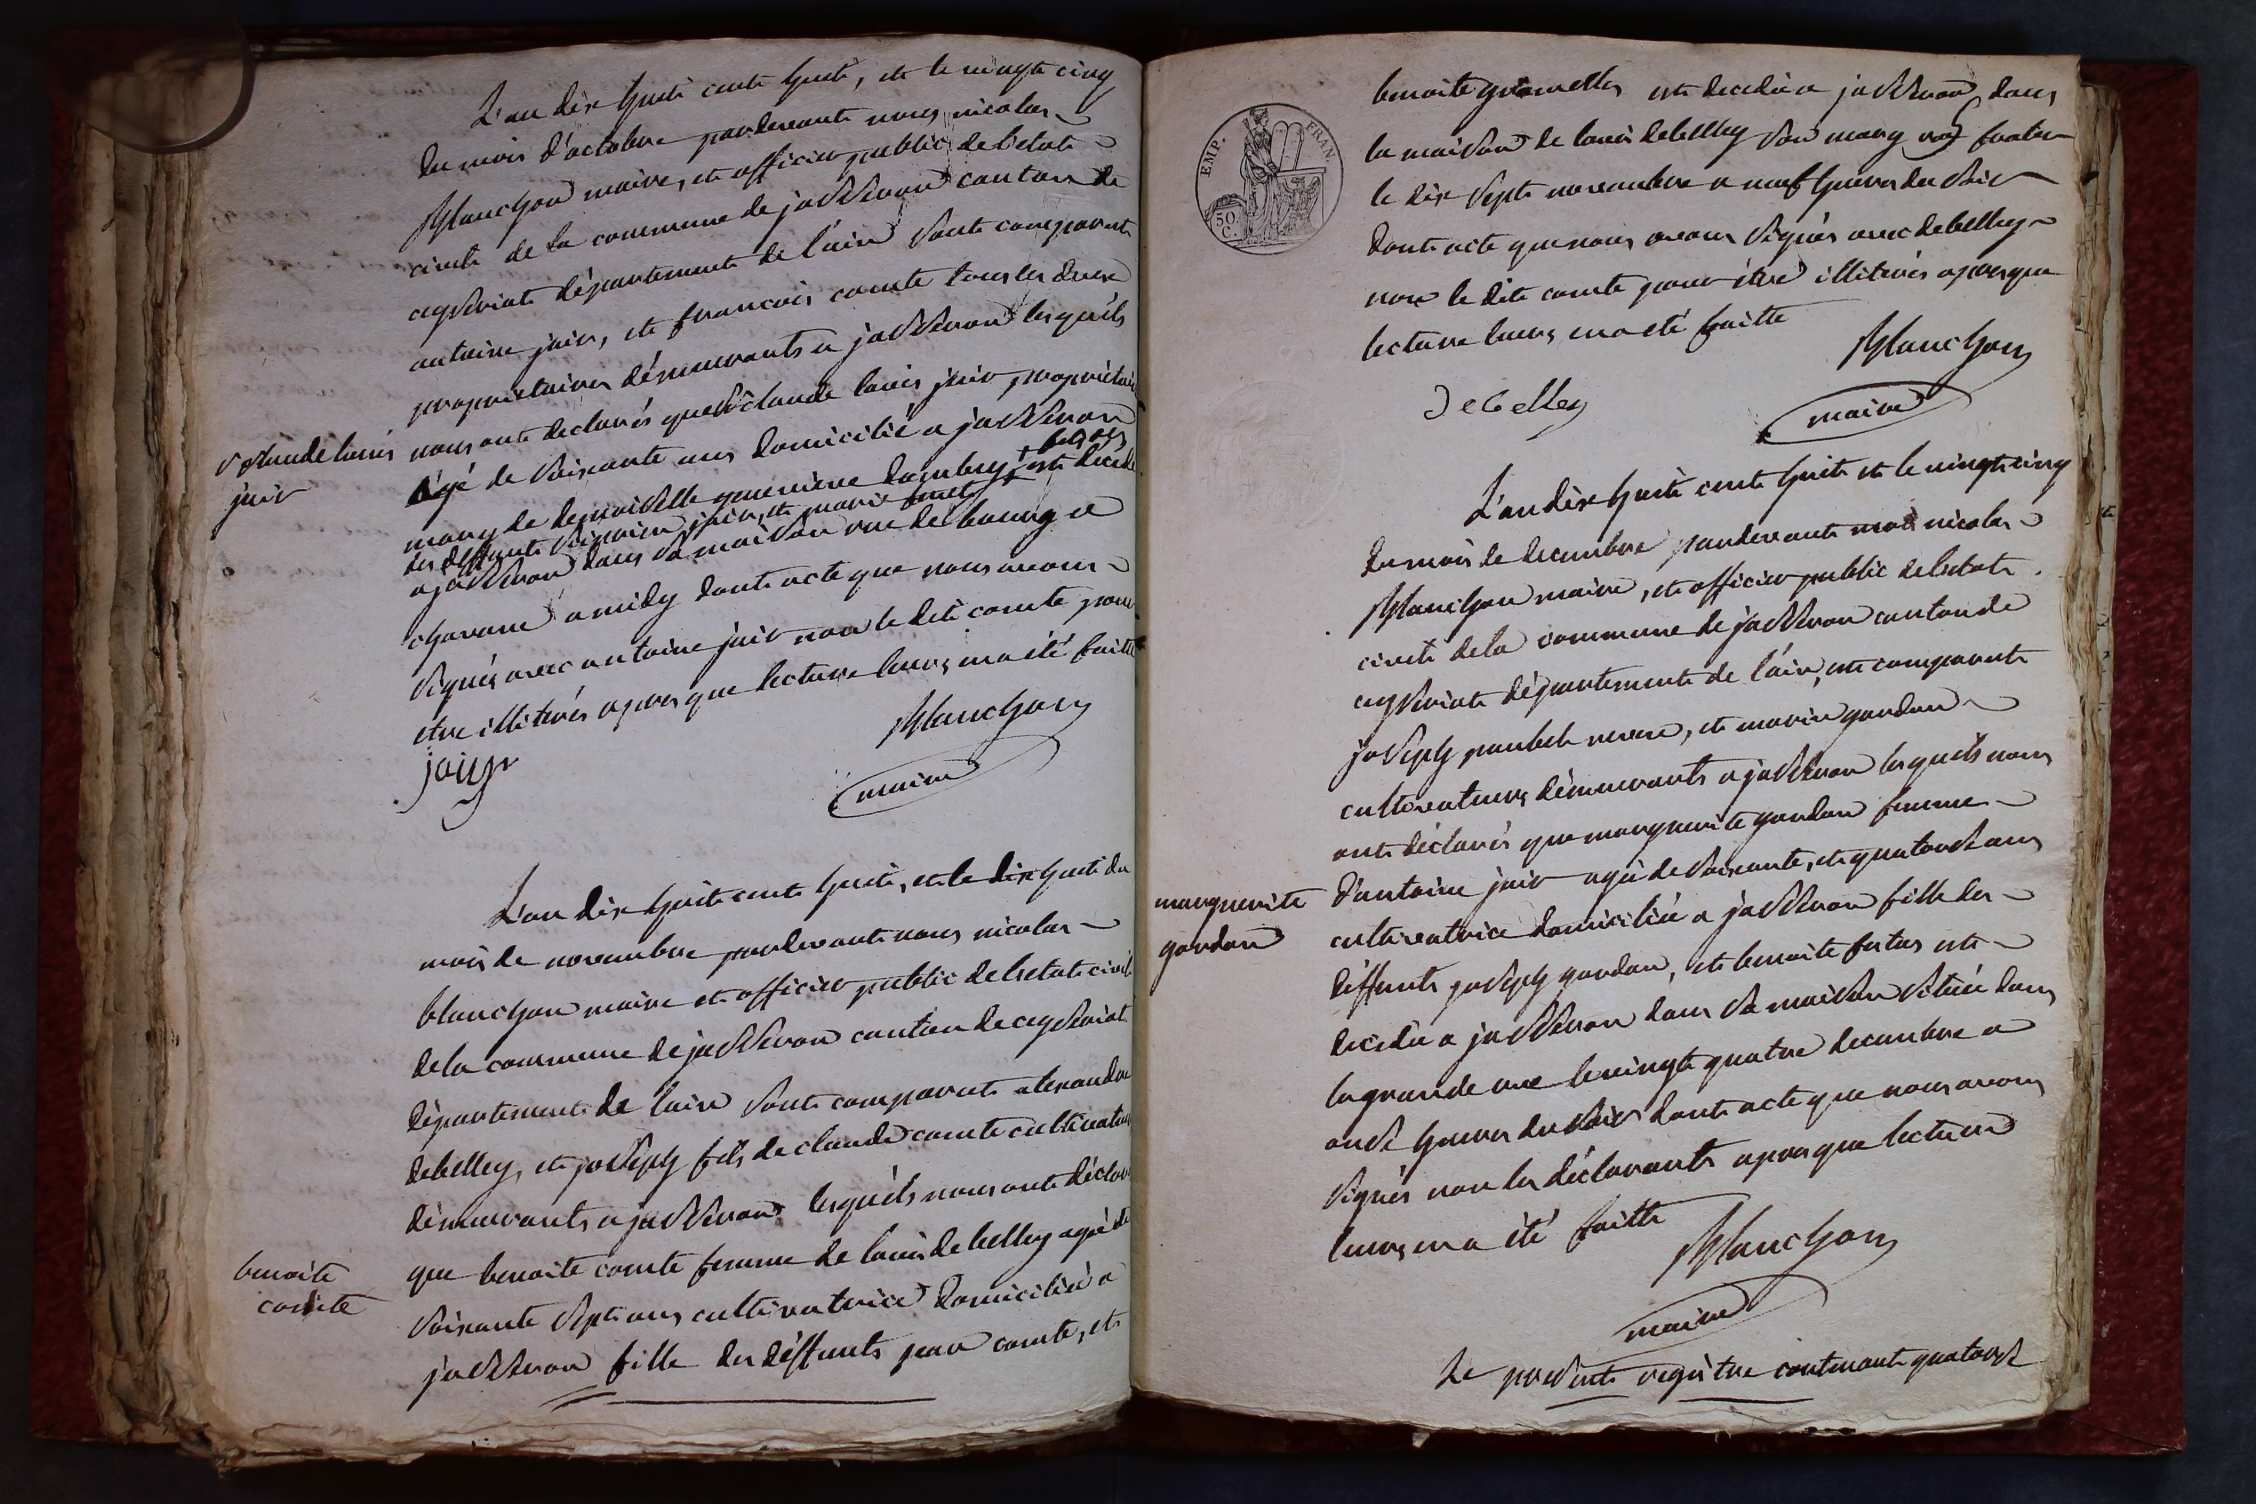 L'an dix huit cent huit, et le vingt cinq
du mois d'octobre pardevant nous nicolas
Blanchon maire, et officier public de l'etat
civile de la commune de jasseron canton de
ceyseriat département de l'ain sont comparut
antoine juir, et francois comte tous les deux
propriétaires démeurants a jasseron lesquéls
claude louis
juir
nous ont déclarés que claude louis juir propriétaire
âgé de soixante ans domicilié a jasseron
mary de demoiselle genevieve dombey est décédé
des deffunts juir, et marie
a jasseron dans sa maison rue de bourg a
charone a midy dont acte que nous avons
signés avec antoine juir non le dit comte pour
etre illiterés apres que lecture leurs en a été faitte
Blanchon
juir
maire
L'an dix huit cent huit, et le dix huit du
mois de novembre pardevant nous nicolas
blanchon maire et officier public de l'etat civil
de la commune de jasseron canton de ceyseriat
département de l'ain sont comparut alexandre
debelley, et joseph fils de claude comte cultivateurs
démeurants a jasseron lesquéls nous ont déclaré
benoite
comte
que benoite comte femme de louis debelley agée de
soixante sept ans cultivatrice domiciliée a
jasseron fille des déffunts jean comte, et
EMP. FRAN.
50.
C.
benoite est decedée a jasseron dans
la maison de louis debelley son mary
le dix sept novembre a neuf heures du soir
dont acte que nous avons signés avec debelley
non le dit comte pour être illiterés apres que
lecture leurs en a eté faitte
Blanchon
Debelley
maire
L'an dix huit cent huit et le vingt cinq
du mois de decembre pardevant moi nicolas
Blanchon maire, et officier public de l'etat
civile de la commune de jasseron canton de
ceyseriat département de l'ain, est comparut
joseph paubel neveu, et marin gordon
cultivateurs démeurants a jasseron lesquéls nous
ont déclarés que marguerite gordon femme
marguerite
gordon
d'antoine juir agée de soixante, et quatorze ans
cultivatrice domiciliée a jasseron fille des
déffunts joseph gordon, et benoite est
decedée a jasseron dans sa maison située dans
la grande rue le vingt quatre decembre a
onze heures du soir dont acte que nous avons
signés non les déclarants apres que lecture
leurs en a été faitte
Blanchon
maire
Le present registre contenant quatorze